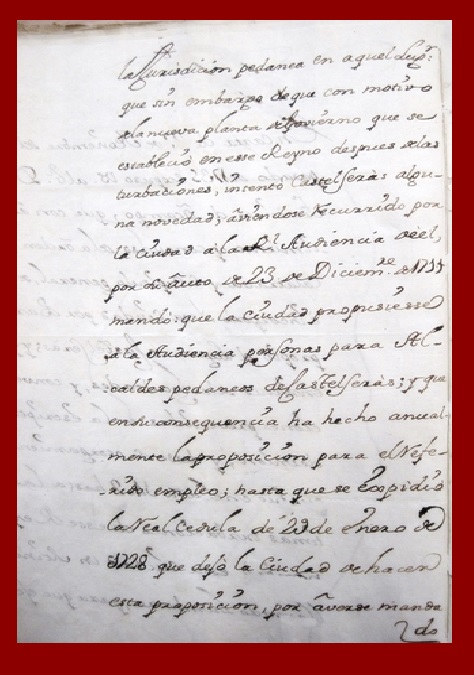 la Jurisdicion pedanea en aquel Lug.r
que sin embargo de que con motivo
de la nueva planta de Govierno que se
establecio en esse Reyno despues de las
turbaciones, intentò Castelseràs algu-
na novedad; aviendose recurrido por
la ciudad a la R.l Audiencia de el,
por su auto de 23 de Diciem.re de
mando: que la ciudad propusiesse
a la Audiencia personas para Al-
caldes pedaneos de Castelseràs; y que
en su consequencia ha hecho anual-
mente la proposicion para el Refe-
rido empleo; hasta que se Expidiò
la Real Cedula de 29 de Enero de
1728 que dejò la Ciudad de hacer
esta proposicion, por averse manda
do